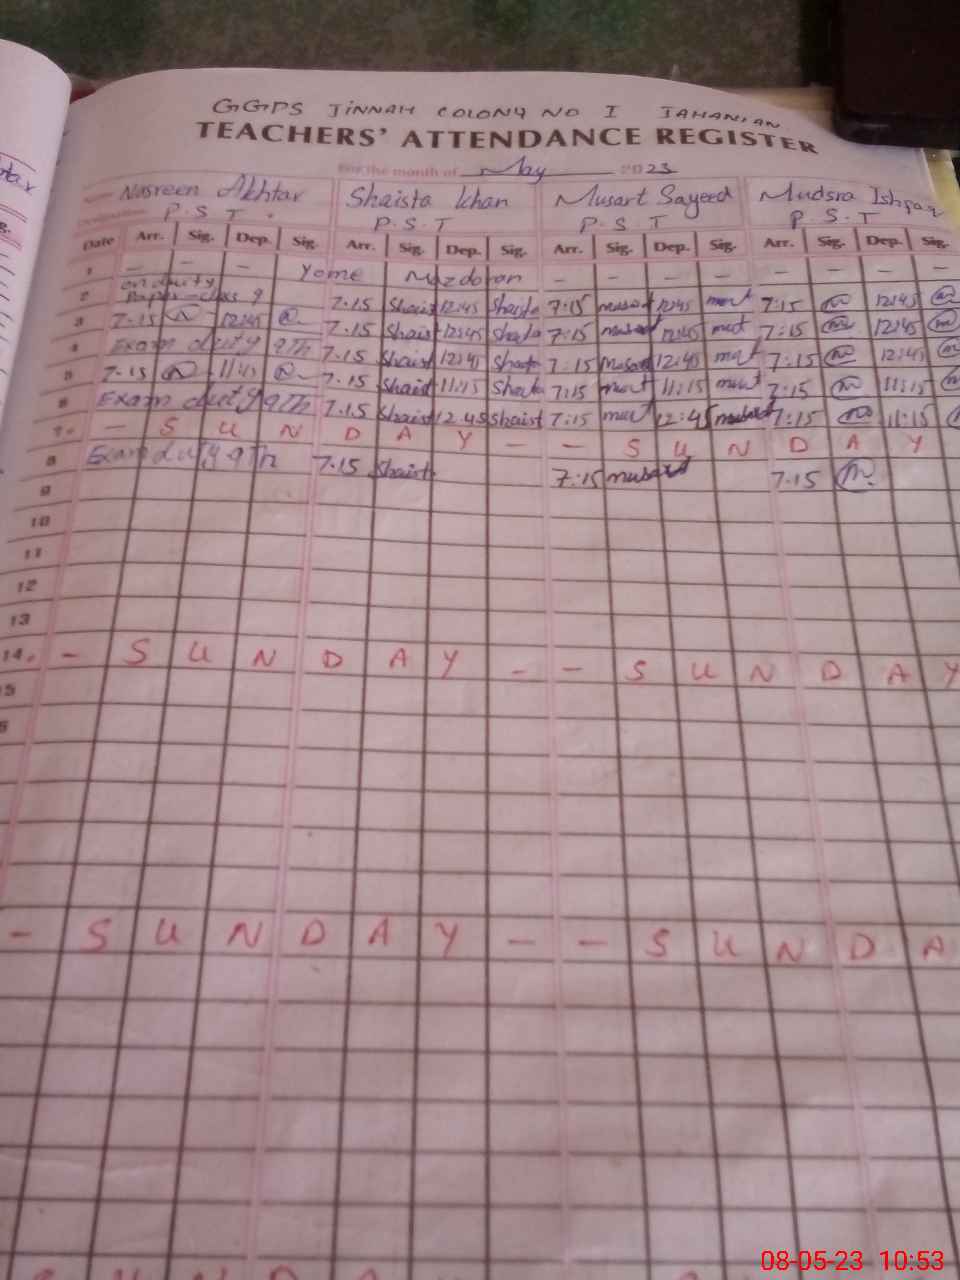 GGPS JINNAH COLONY NO I JAHANIAN
TEACHERS' ATTENDANCE REGISTER
For the month of May 2023
Name Nasreen Akhtar Shaista Khan Musart Sayeed Mudsra Ishfaq
Designation P.S.T. P.S.T P.S.T P.S.T
Date Arr. Sig. Dep. Sig. Arr. Sig. Dep. Sig. Arr. Sig. Dep. Sig. Arr. Sig. Dep. Sig.
1 - - - Yome Mazdoran - - - - - - - -
on duity
2 Paper class 9 7.15 Shaist 12:45 Shaista 7:15 musart 12:45 7:15 12:45
3 7.15 12:45 7.15 Shaist 12:45 Shaista 7:15 12:45 7:15 12:45
4 Exam duty 9Th 7.15 Shaist 12:45 Shaista 7:15 Musart 12:45 7:15 12:45
5 7.15 11:15 7.15 Shaist 11:15 Shaista 7:15 11:15 7:15 11:15
6 Exam duty 9Th 7.15 Shaist 12.45 Shaist 7:15 12:45 musart 7:15 11:15
7. - S U N D A Y - - S U N D A Y
8 Exam duty 9Th 7.15 Shaist 7:15 musart 7.15
9
10
11
12
13
14. - S U N D A Y - - S U N D A Y
5
6
- S U N D A Y - - S U N D A
U N D A
08-05-23 10:53